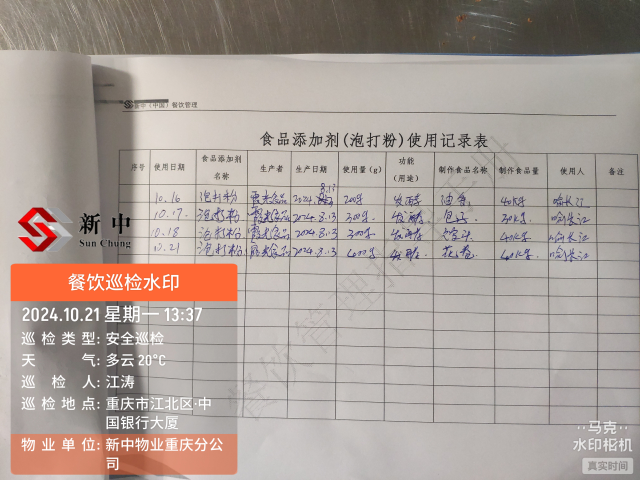 新中(中国)餐饮管理
食品添加剂(泡打粉)使用记录表
序号 使用日期 食品添加剂名称 生产者 生产日期 使用量(g) 功能(用途) 制作食品名称 制作食品量 使用人 备注
10.16 泡打粉 食品 2024.8.13 200克 发酵 40K克
10.17. 泡打粉 食品 2024.8.13 300克 发酵 包子 30K克
10.18 泡打粉 食品 2024.8.13 300克 发酵 40K克
10.21 泡打粉 食品 2024.8.13 400克 发酵 花卷 40K克
新中
Sun Chung
餐饮巡检水印
2024.10.21 星期一 13:37
巡检类型: 安全巡检
天气: 多云 20°C
巡检人: 江涛
巡检地点: 重庆市江北区·中
国银行大厦
物业单位: 新中物业重庆分公
司
餐饮管理
马克
水印相机
真实时间